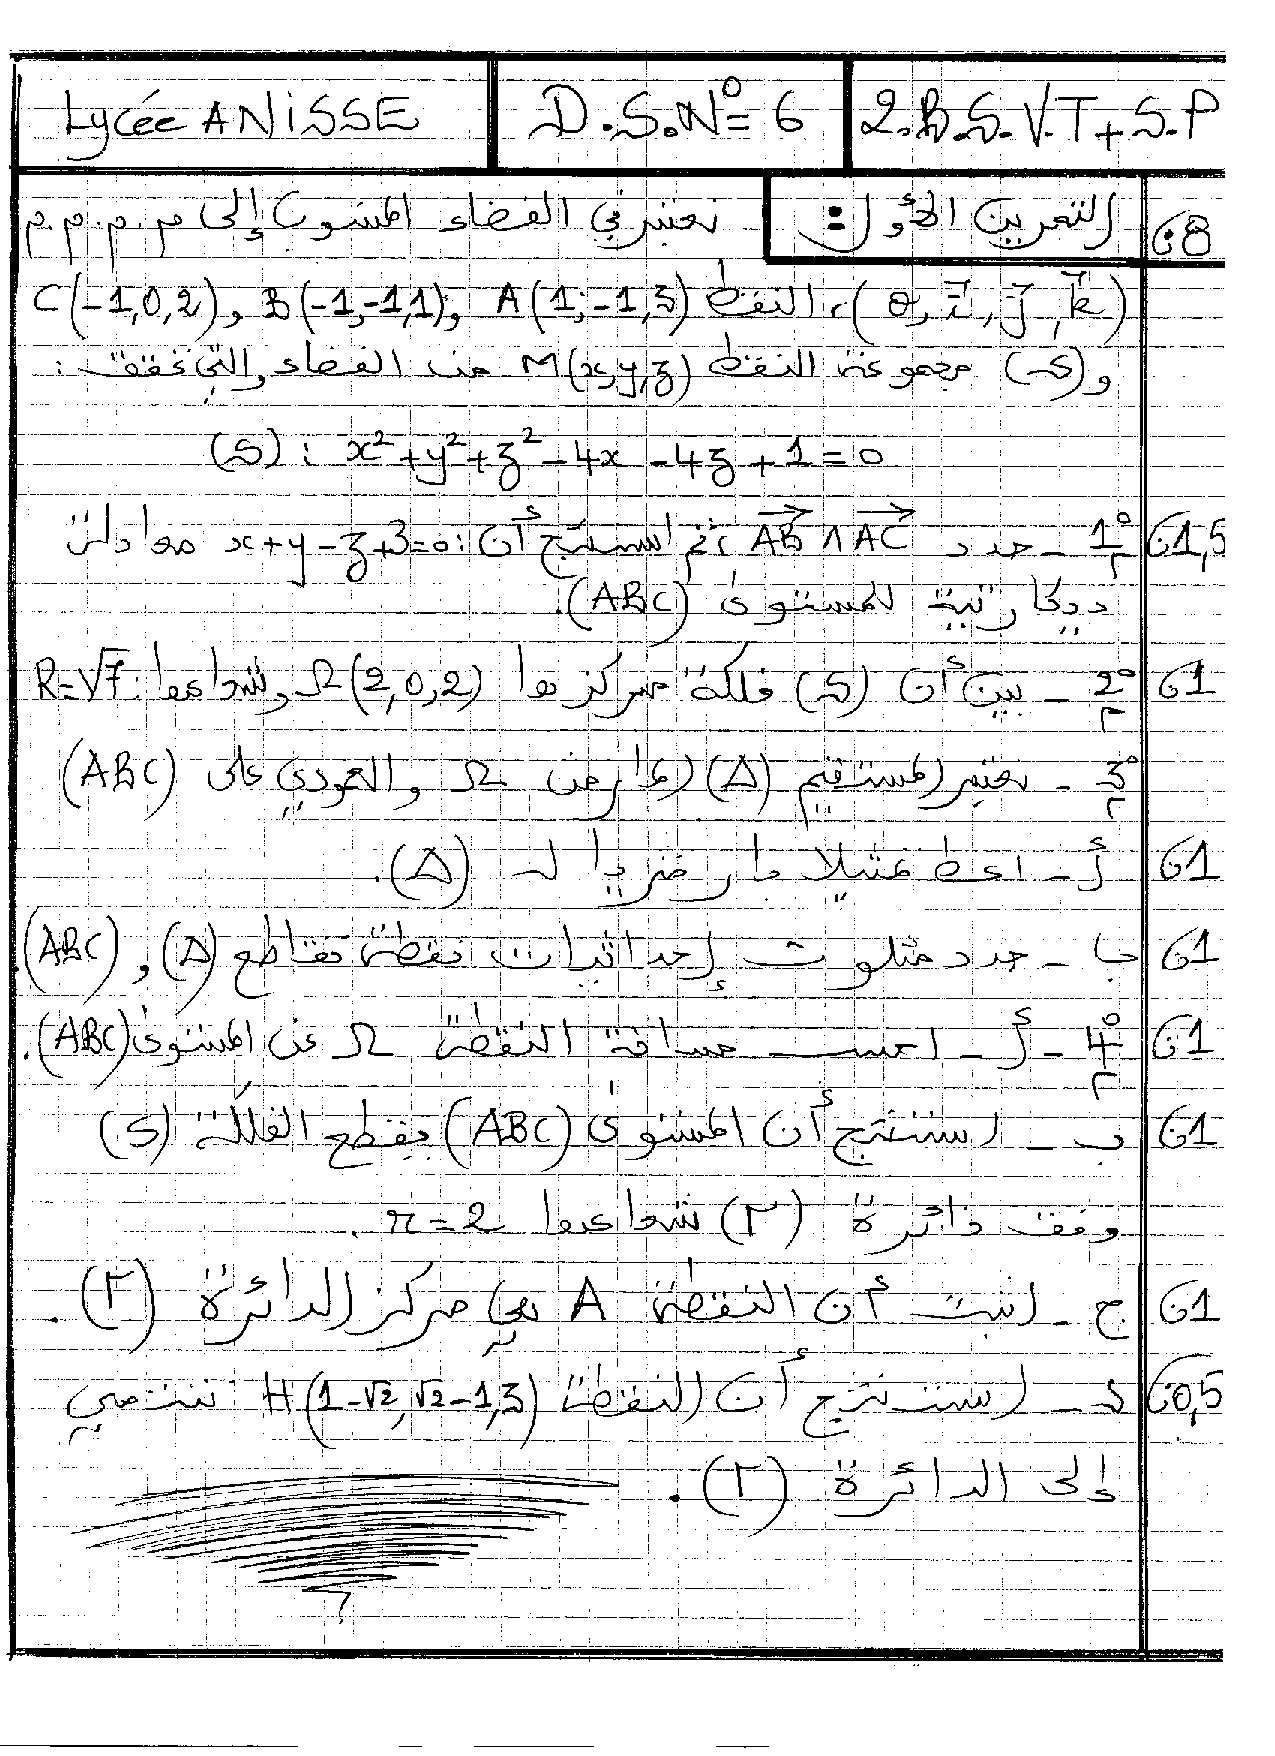 Lycée ANISSE
D.S.N°= 6
2.B.S.V.T+S.P
التمرين الأول: نعتبر في الفضاء المنسوب إلى م.م.م.م 8ن
(O, i, j, k)، النقط A(1;-1,3), B(-1,-1,1), C(-1,0,2)
و(S) مجموعة النقط M(x,y,z) من الفضاء والتي تحقق:
(S): x²+y²+z²-4x-4z+1=0
1° - حدد AB∧AC ثم استنتج أن: x+y-z+3=0 معادلة 1,5ن
ديكارتية للمستوى (ABC).
2° - بين أن (S) فلكة مركزها Ω(2,0,2) وشعاعها: R=√7 1ن
3° - نعتبر المستقيم (Δ) المار من Ω والعمودي على (ABC)
أ - اعط تمثيلا بارامتريا لـ (Δ). 1ن
ب - حدد مثلوث إحداثيات نقطة تقاطع (Δ) و (ABC). 1ن
4° - أ - احسب مسافة النقطة Ω عن المستوى (ABC). 1ن
ب - استنتج أن المستوى (ABC) يقطع الفلكة (S) 1ن
وفق دائرة (Γ) شعاعها r=2.
ج - اثبت أن النقطة A هي مركز الدائرة (Γ). 1ن
د - استنتج أن النقطة H(1-√2,√2-1,3) تنتمي 0,5ن
إلى الدائرة (Γ).